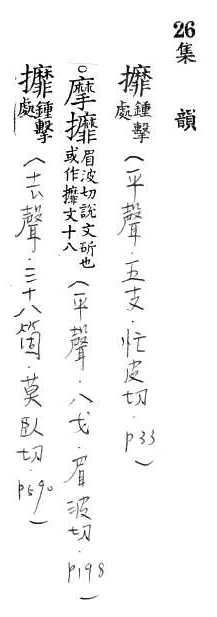 26 集韻
攠鍾擊處(平聲．五支．忙皮切．P33)
○摩攠眉波切說文斫也或作攠文十八(平聲．八戈．眉波切．P198)
攠鍾擊處(去聲．三十八箇．莫臥切．P590)